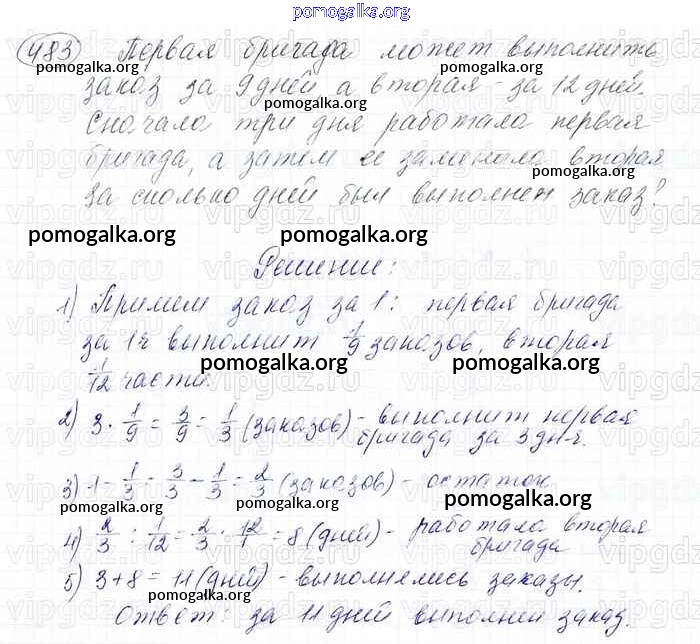 pomogalka.org
483 Первая бригада может выполнить
pomogalka.org
заказ за 9 дней а вторая - за 12 дней.
pomogalka.org
Сначала три дня работала первая
бригада, а затем ее заменила вторая
pomogalka.org
За сколько дней был выполнен заказ?
pomogalka.org pomogalka.org
Решение:
1) Примем заказ за 1: первая бригада
за 1ч выполнит 1/9 заказов, вторая
pomogalka.org pomogalka.org
1/12 часть.
2) 3 · 1/9 = 3/9 = 1/3 (заказов) - выполнит первая
бригада за 3 дня.
pomogalka.org
3) 1 - 1/3 = 3/3 - 1/3 = 2/3 (заказов) - остаток
pomogalka.org pomogalka.org
4) 2/3 : 1/12 = 2/3 · 12/1 = 8 (дней) - работала вторая
бригада
pomogalka.org
5) 3 + 8 = 11 (дней) - выполнялись заказы.
pomogalka.org
Ответ: за 11 дней выполнен заказ.
pomogalka.org